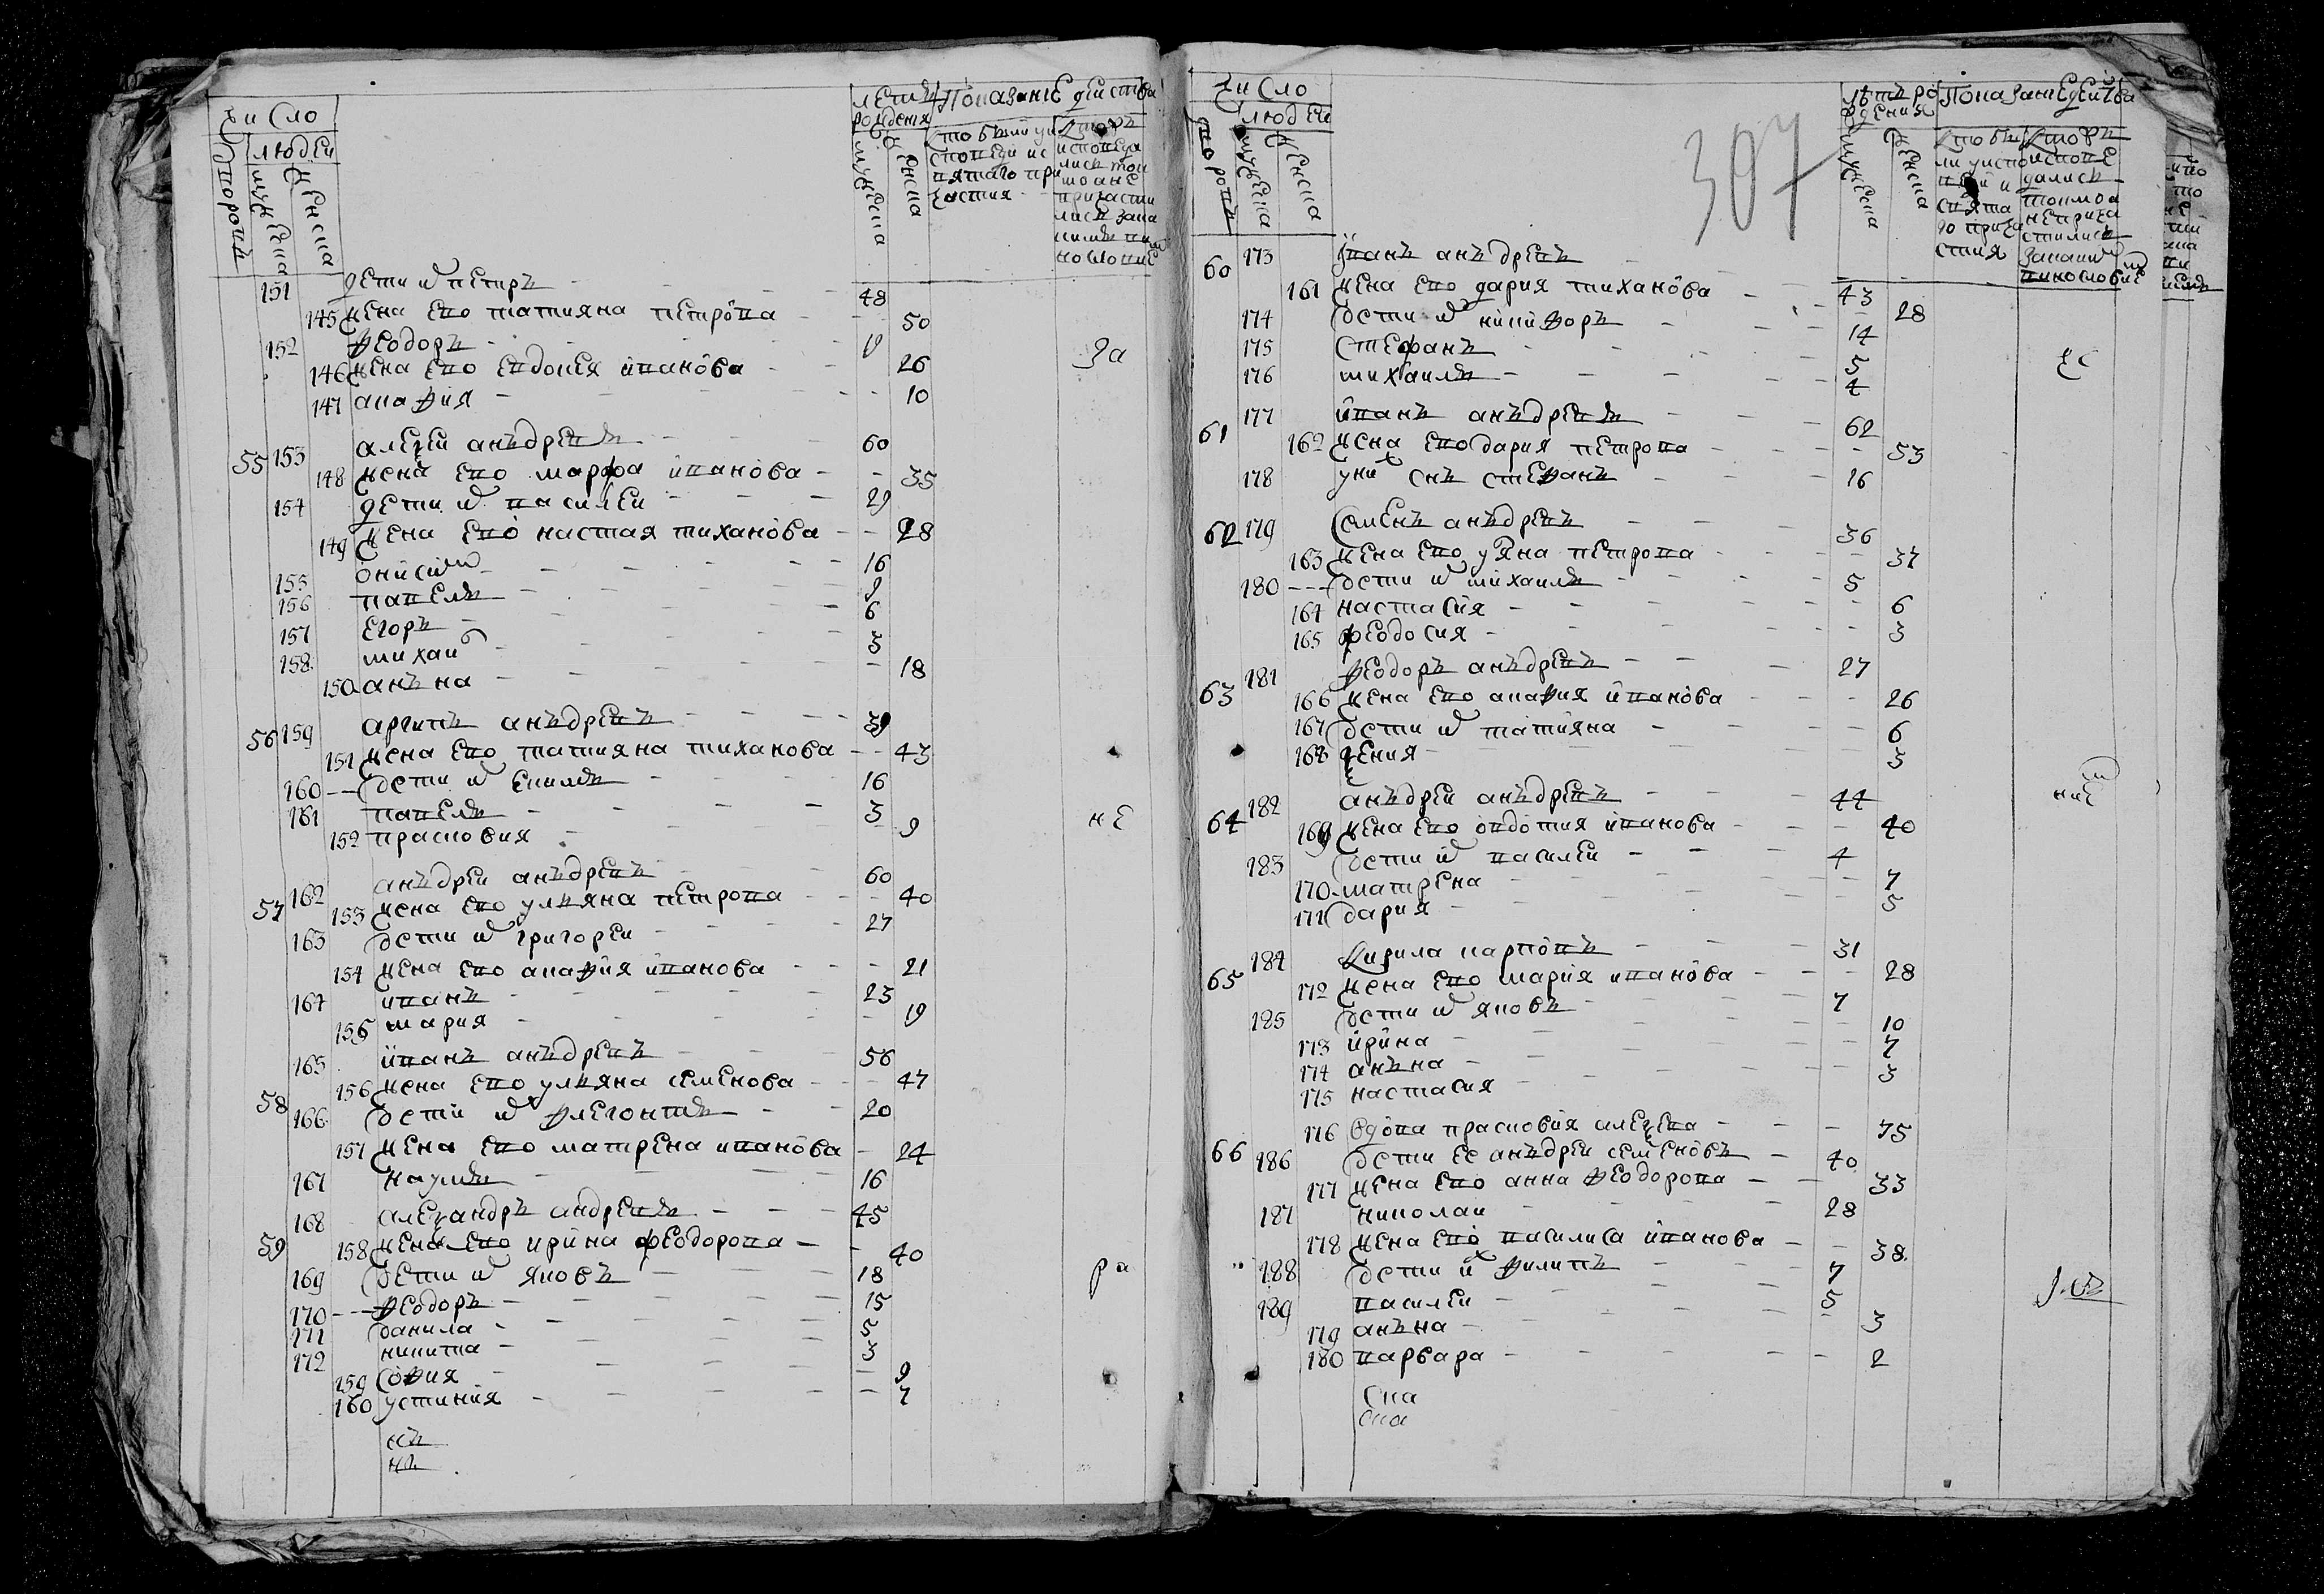 число
людеи
дворовъ
мужеска
женска
летъ рождения
мужеска
женска
Показание действа
Кто были у исповеди и святаго причастия
Которые исповедались токмо а не причастились и за каким винословием
151 дети их петръ 48
145 жена ево татияна петрова 50
152 феодоръ
146 жена ево евдокея иванова 26 за
147 агафия 10
55 153 алеѯеи анъдреевъ 60
148 жена ево марфа иванова 35
154 дети их василеи 29
149 жена ево настая тиханова 28
155 онисим 16
156 павелъ 9
157 егоръ 6
158 михаи 3
150 анъна 18
56 159 архипъ анъдреевъ 39
151 жена ево татияна тиханова 43
160 дети их екимъ 16
161 павелъ 3
152 прасковия 9 не
57 162 анъдреи анъдреевъ 60
153 жена ево ульяна петрова 40
163 дети их григореи 27
154 жена ево агафия иванова 21
164 иванъ 23
155 мария 19
58 165 иванъ анъдреевъ 56
156 жена ево ульяна семенова 47
166 дети их флегонтъ 20
157 жена ево матрена иванова 24
167 наумъ 16
59 168 алеѯандръ андреевъ 45
158 жена ево ирина феодорова 40
169 дети их яковъ 18 ра
170 феодоръ 15
171 данила 5
172 никита 3
159 софия 9
160 устиния 7
число
людеи
дворовъ
мужеска
женска
307
летъ рождения
мужеска
женска
Показание действа
60 173 иванъ анъдреевъ 43
161 жена ево дария тиханова 28
174 дети их никифоръ 14
175 стефанъ 5
176 михаилъ 4
61 177 иванъ анъдреевъ 62
162 жена ево дария петрова 53
178 у них снъ стефанъ 16
62 179 семенъ анъдреевъ 36
163 жена ево уляна петрова 37
180 дети их михаилъ 5
164 настасия 6
165 феодосия 3
63 181 феодоръ анъдреевъ 27
166 жена ево агафия иванова 26
167 дети их татияна 6
168 ѯения 3
64 182 анъдреи анъдреевъ 44
169 жена ево овдотия иванова 40
183 дети их василеи 4
170 матрена 7
171 дария 5
65 184 Кирила карповъ 31
172 жена ево мария иванова 28
185 дети их яковъ 7
173 ирина 10
174 анъна 7
175 настасия 3
66 176 вдова прасковия алеѯева 75
186 дети ее анъдреи семеновъ 40
177 жена ево анна феодорова 33
187 николаи 28
178 жена ево василиса иванова 38
188 дети их филипъ 7
189 василеи 5
179 анъна 3
180 варвара 2